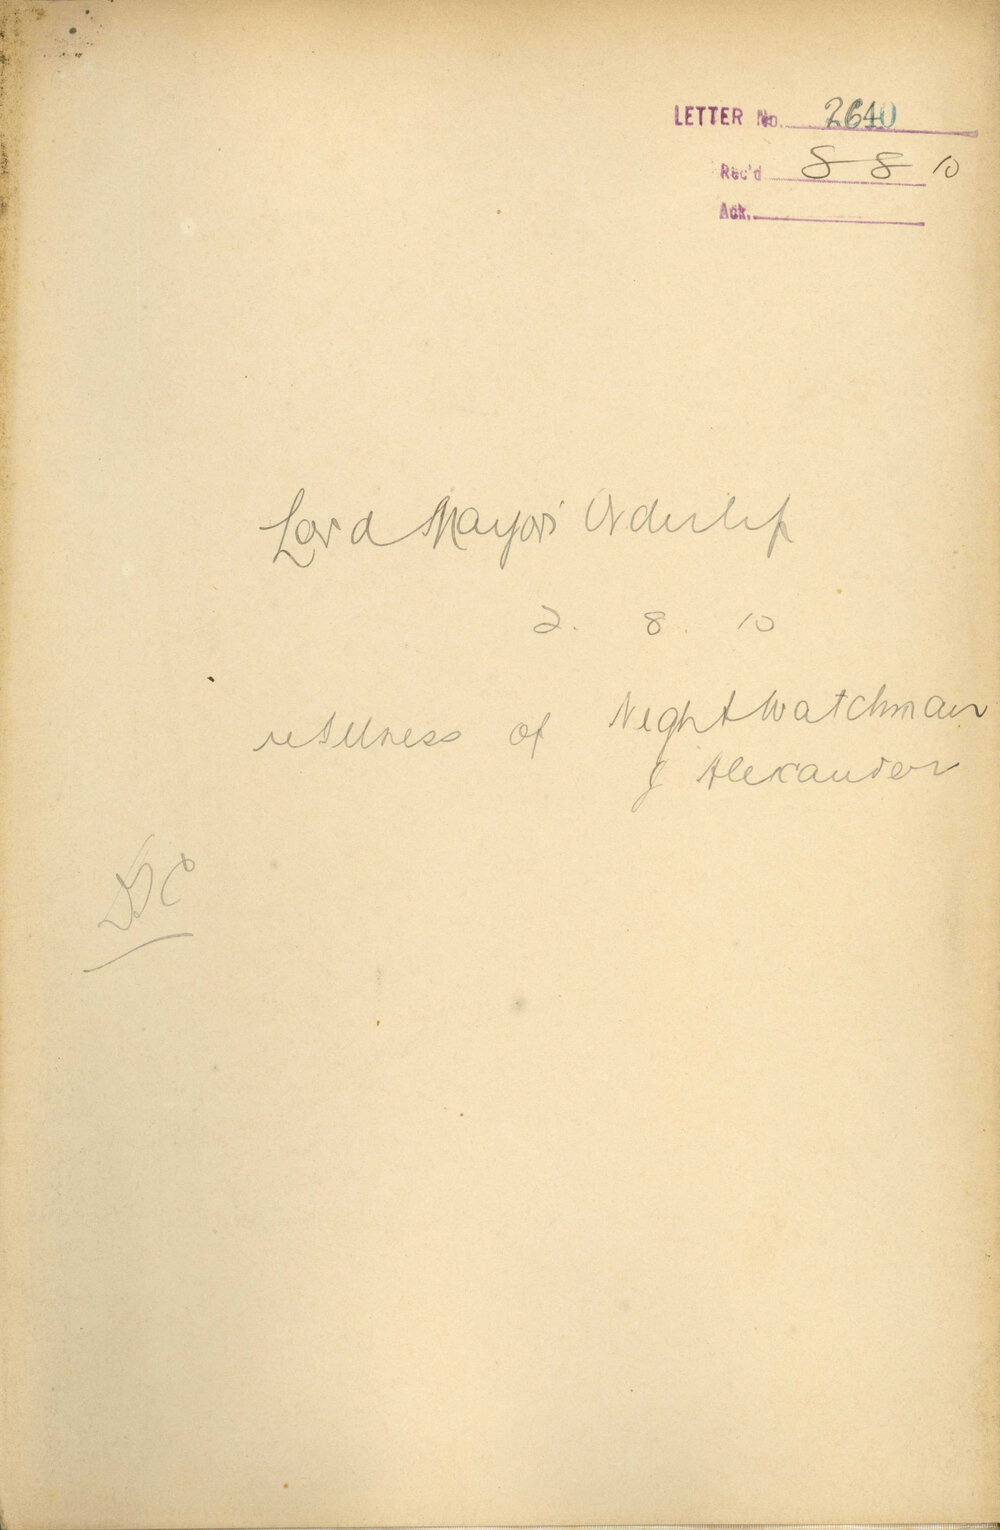 LETTER No. 2640
Rec'd 8 8 10
Ack.
Lord Mayors' Orderly
2. 8. 10
re Illness of Night Watchman
J Alexander